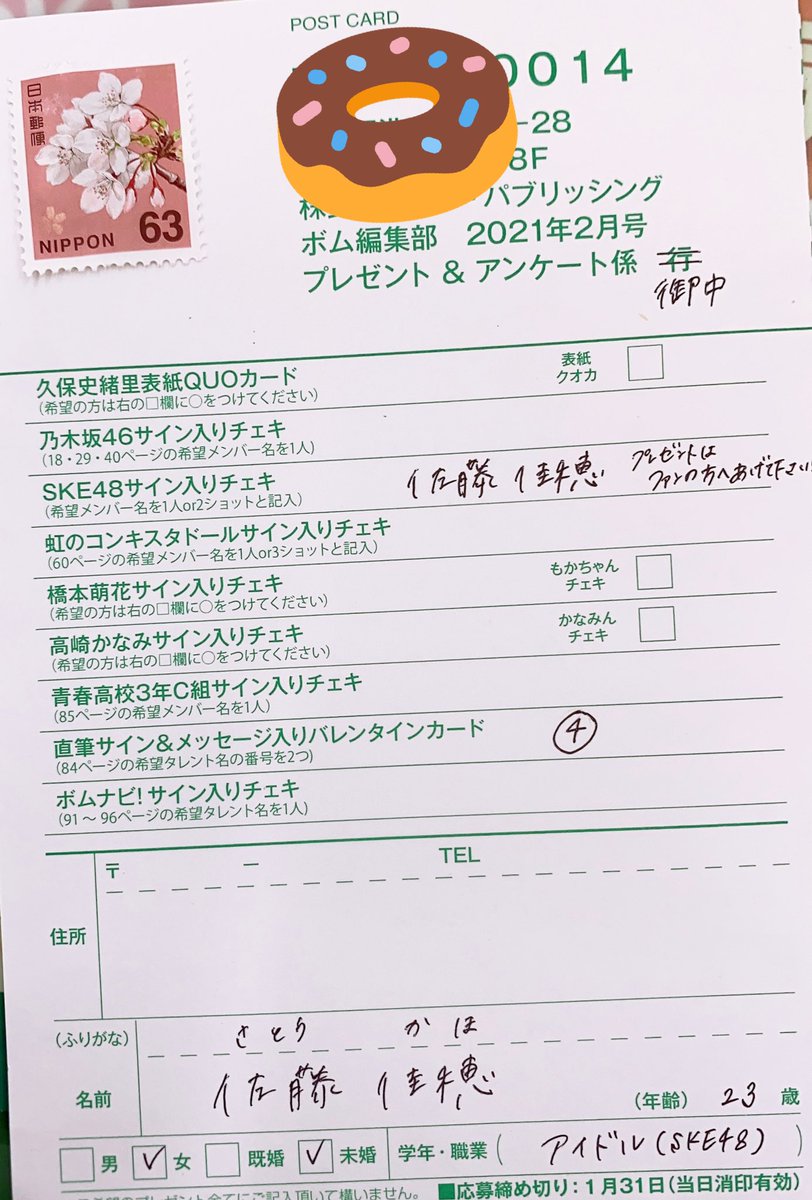 POST CARD
日本郵便
NIPPON 63
0014
-28
8F
パブリッシング
ボム編集部 2021年2月号
プレゼント & アンケート係 行
御中
久保史緒里表紙QUOカード
(希望の方は右の□欄に○をつけてください)
表紙
クオカ
乃木坂46サイン入りチェキ
(18・29・40ページの希望メンバー名を1人)
SKE48サイン入りチェキ
(希望メンバー名を1人or2ショットと記入)
佐藤佳穂 プレゼントは
ファンの方へあげて下さい
虹のコンキスタドールサイン入りチェキ
(60ページの希望メンバー名を1人or3ショットと記入)
橋本萌花サイン入りチェキ
(希望の方は右の□欄に○をつけてください)
もかちゃん
チェキ
高崎かなみサイン入りチェキ
(希望の方は右の□欄に○をつけてください)
かなみん
チェキ
青春高校3年C組サイン入りチェキ
(85ページの希望メンバー名を1人)
直筆サイン&メッセージ入りバレンタインカード
(84ページの希望タレント名の番号を2つ)
④
ボムナビ!サイン入りチェキ
(91〜96ページの希望タレント名を1人)
〒 ー TEL
住所
(ふりがな) さとう かほ
名前 佐藤佳穂 (年齢) 23 歳
男 ✓女 既婚 ✓未婚 学年・職業 ( アイドル(SKE48) )
■応募締め切り:1月31日(当日消印有効)